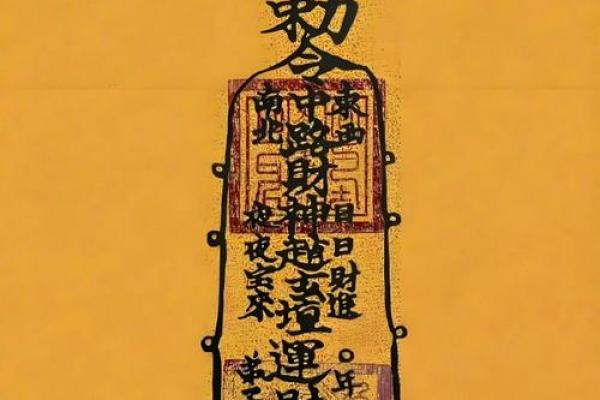 勅令
東西
日日財進
〇年
中路財神趙玄壇運
南北
夜夜宝來
弟